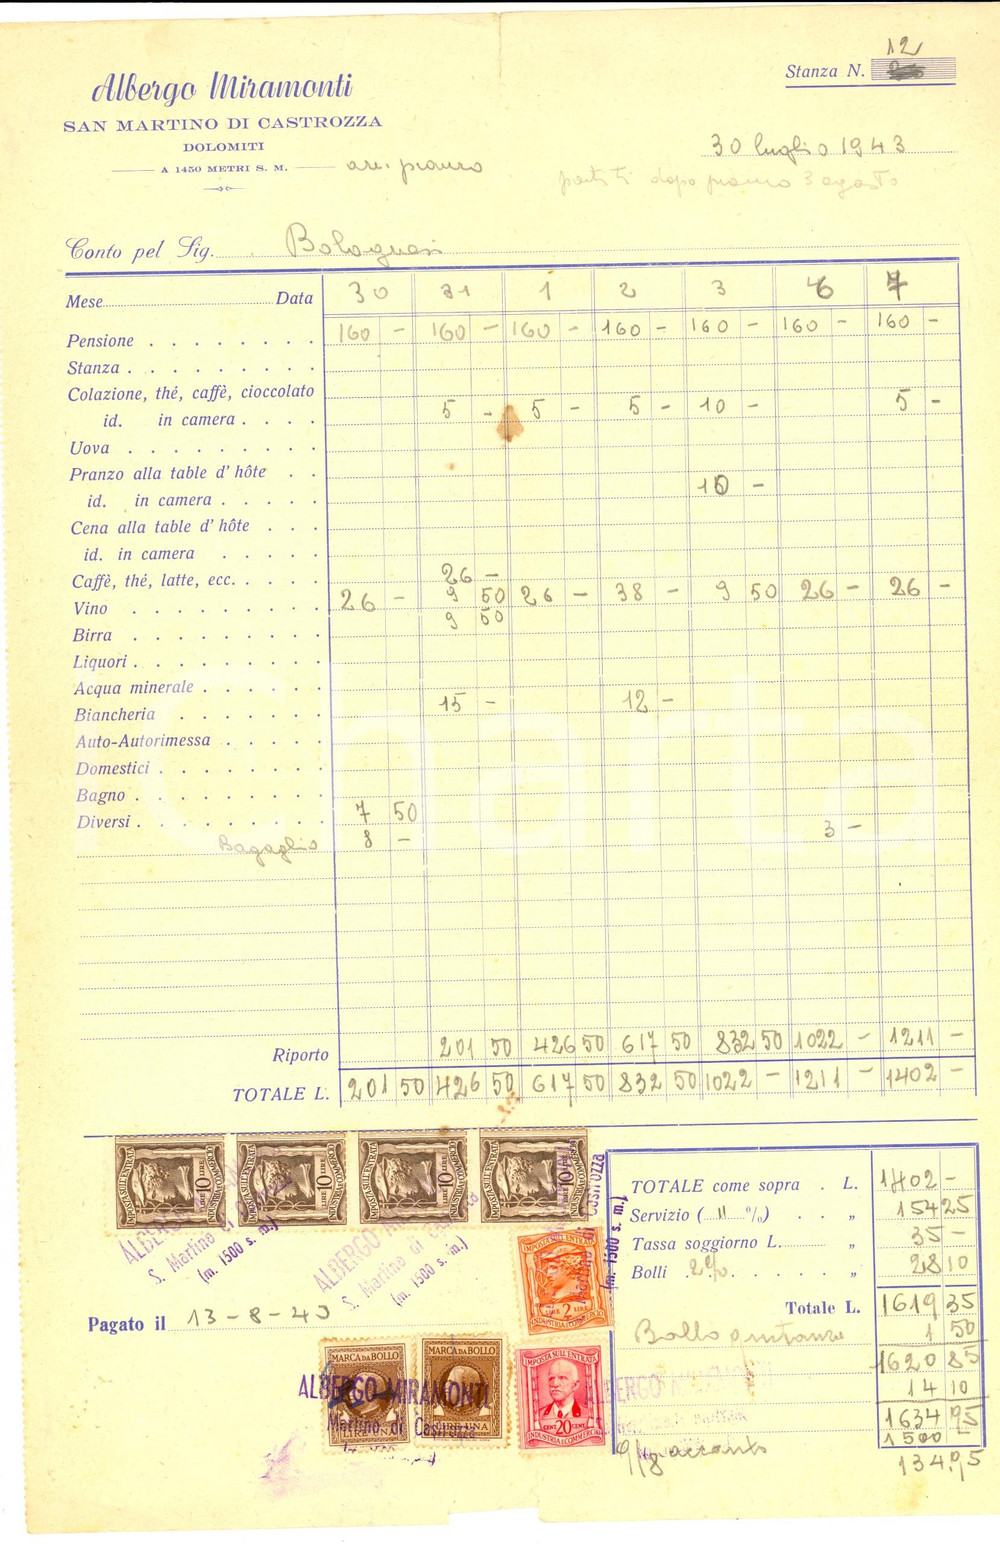 12
Stanza N.
Albergo Miramonti
SAN MARTINO DI CASTROZZA
DOLOMITI
A 1450 METRI S. M.
arr. pranzo
30 luglio 1943
partiti dopo pranzo 3 agosto
Conto pel Sig. Bolognesi
Mese Data 30 31 1 2 3 6 7
Pensione 160 - 160 - 160 - 160 - 160 - 160 - 160 -
Stanza
Colazione, thé, caffè, cioccolato
id. in camera 5 - 5 - 5 - 10 - 5 -
Uova
Pranzo alla table d' hôte
id. in camera 10 -
Cena alla table d' hôte
id. in camera
Caffè, thé, latte, ecc. 26 -
Vino 26 - 9 50 26 - 38 - 9 50 26 - 26 -
9 50
Birra
Liquori
Acqua minerale
Biancheria 15 - 12 -
Auto-Autorimessa
Domestici
Bagno
Diversi 7 50
Bagaglio 8 - 3 -
Riporto 201 50 426 50 617 50 832 50 1022 - 1211 -
TOTALE L. 201 50 426 50 617 50 832 50 1022 - 1211 - 1402 -
IMPOSTA SULL'ENTRATA LIRE 10 LIRE INDUSTRIA E COMMERCIO
IMPOSTA SULL'ENTRATA LIRE 10 LIRE INDUSTRIA E COMMERCIO
IMPOSTA SULL'ENTRATA LIRE 10 LIRE INDUSTRIA E COMMERCIO
IMPOSTA SULL'ENTRATA LIRE 10 LIRE INDUSTRIA E COMMERCIO
ALBERGO
S. Martino di
(m. 1500 s. m.)
ALBERGO
S. Martino di
(m. 1500 s. m.)
Castrozza
(m. 1500 s. m.)
IMPOSTA SULL'ENTRATA
LIRE 2 LIRE
INDUSTRIA E COMMERCIO
TOTALE come sopra . L. 1402 -
Servizio ( 11 %) „ 154 25
Tassa soggiorno L. „ 35 -
Bolli 2% „ 28 10
Totale L. 1619 35
Bollo quitanza 1 50
1620 85
14 10
1634 95
1500 -
9/8 acconto
134.95
Pagato il 13-8-43
MARCA DA BOLLO
LIRE UNA
MARCA DA BOLLO
UNA
ALBERGO MIRAMONTI
Martino di Castrozza
IMPOSTA SULL'ENTRATA
CENT. 20 CENT.
INDUSTRIA E COMMERCIO
ALBERGO